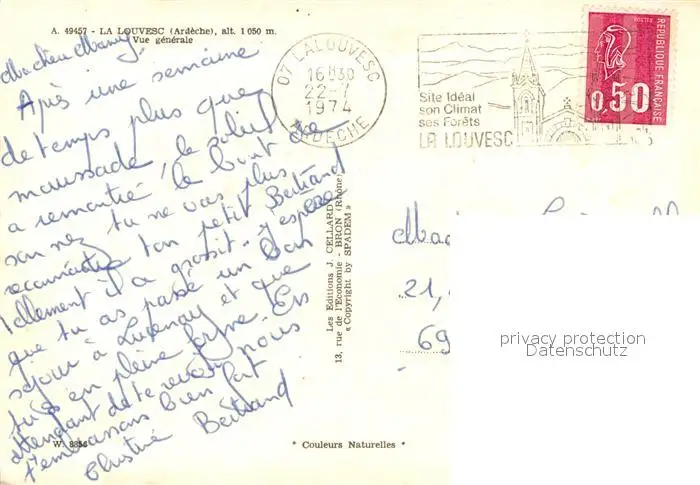 A. 49457 - LA LOUVESC (Ardèche), alt. 1 050 m.
Vue générale
Après une semaine
de temps plus que
maussade, le soleil
a remontré le bout de
son nez. tu ne vas plus
reconnaître ton petit Bertrand
tellement il a grossit. J'espère
que tu as passé un bon
séjour à Luzenay et que
tu es en pleine forme. En
attendant de te revoir, nous
t'embrassons bien fort
Christine Bertrand
W. 8856
07 LALOUVESC
16H30
22-7
1974
ARDECHE
Site Idéal
son Climat
ses Forêts
LA LOUVESC
REPUBLIQUE FRANÇAISE
0,50
Les Editions J. CELLARD
13, rue de l'Economie - BRON (Rhône)
« Copyright by SPADEM »
21,
69
privacy protection
Datenschutz
" Couleurs Naturelles "